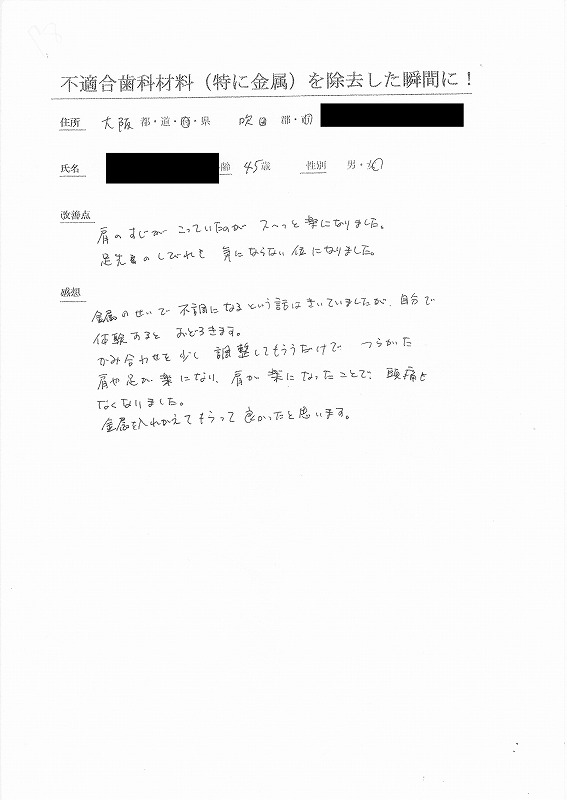 不適合歯科材料（特に金属）を除去した瞬間に！
住所 大阪 都・道・府・県 吹田 郡・市
氏名 齢 45歳 性別 男・女
改善点
肩のすじが こっていたのが スーっと楽になりました。
足先のしびれも 気にならない位になりました。
感想
金属のせいで 不調になるという話はきいていましたが、自分で
体験すると おどろきます。
かみ合わせを少し 調整してもらうだけで つらかった
肩や足が楽になり、肩が楽になったことで、頭痛も
なくなりました。
金属を入れかえてもらって良かったと思います。